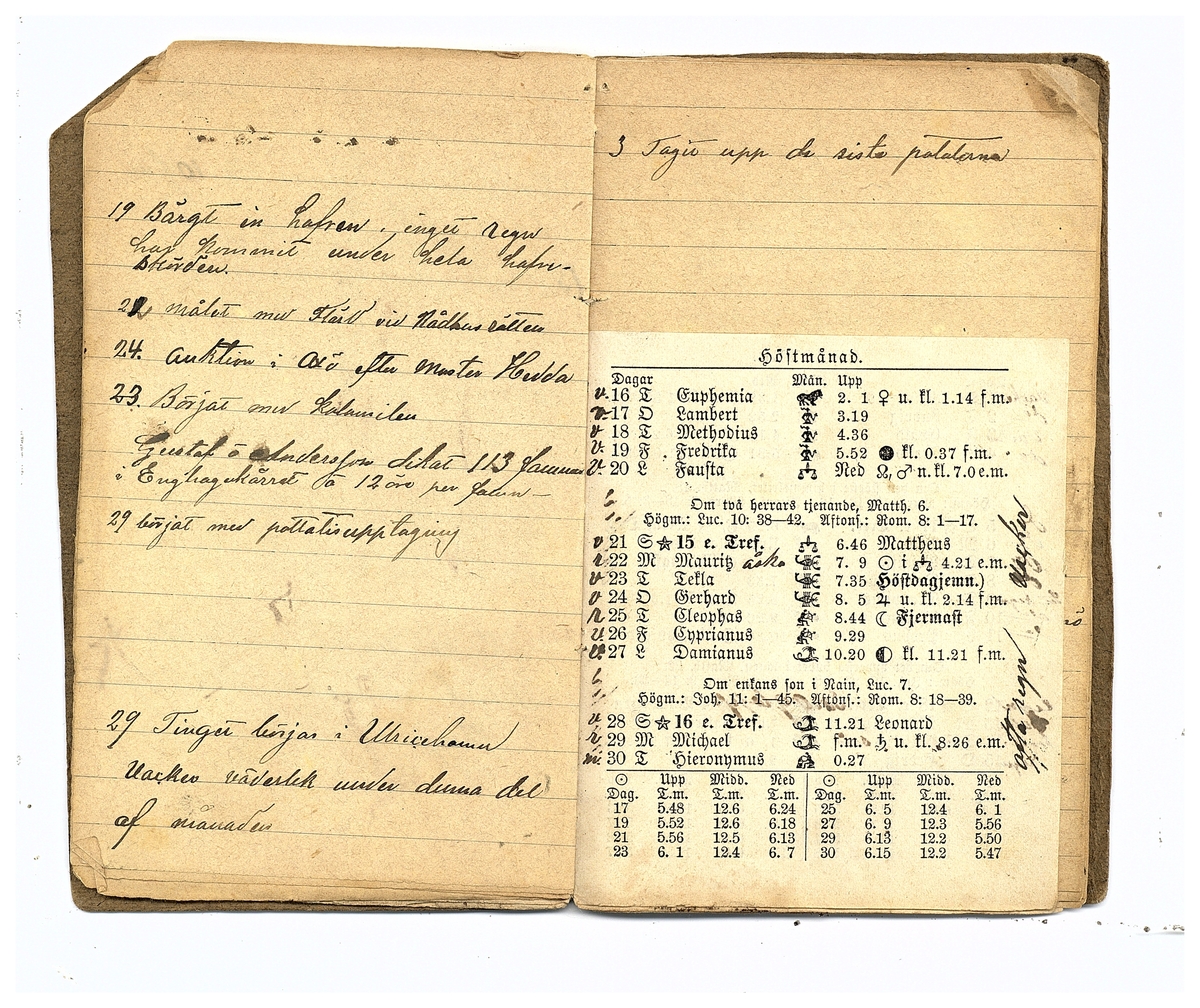 19 Bärgt in hafren, inget regn
har kommit under hela hafre-
skörden.
22 målet med Färd vid Rådhusrätten
24. Auktion i Axö efter Moster Hedda
23. Börjat med kolamilen
Gustaf o Andersson dikat 113 famnar
i Enghagekärret à 12 öre per famn—
29 börjat med pottatisupptagning
29 Tinget börjar i Ulricehamn
Vacker väderlek under denna del
af månaden
3 Tagit upp de sista potaterna
Höstmånad.
Dagar Mån. Upp
v. 16 T Euphemia 2. 1 ♀ u. kl. 1.14 f.m.
v. 17 O Lambert 3.19
v 18 T Methodius 4.36
v. 19 F Fredrika 5.52 kl. 0.37 f.m.
v. 20 L Fausta Ned ☊, ♂ n. kl. 7.0 e.m.
Om två herrars tjenande, Matth. 6.
Högm.: Luc. 10: 38—42. Aftons.: Rom. 8: 1—17.
v 21 S 15 e. Tref. 6.46 Mattheus
r 22 M Mauritz åska 7. 9 ☉ i ♎ 4.21 e.m.
v 23 T Tekla 7.35 Höstdagjemn.)
v 24 O Gerhard 8. 5 ♃ u. kl. 2.14 f.m.
r 25 T Cleophas 8.44 ☾ Fjermast
v 26 F Cyprianus 9.29
v. 27 L Damianus 10.20 kl. 11.21 f.m.
Om enkans son i Nain, Luc. 7.
Högm.: Joh. 11: 1—45. Aftons.: Rom. 8: 18—39.
v 28 S 16 e. Tref. 11.21 Leonard
r 29 M Michael f.m. ♄ u. kl. 8.26 e.m.
m. 30 T Hieronymus 0.27
☉ Upp Midd. Ned ☉ Upp Midd. Ned
Dag. T.m. T.m. T.m. Dag. T.m. T.m. T.m.
17 5.48 12.6 6.24 25 6. 5 12.4 6. 1
19 5.52 12.6 6.18 27 6. 9 12.3 5.56
21 5.56 12.5 6.13 29 6.13 12.2 5.50
23 6. 1 12.4 6. 7 30 6.15 12.2 5.47
ofta regn
vacker